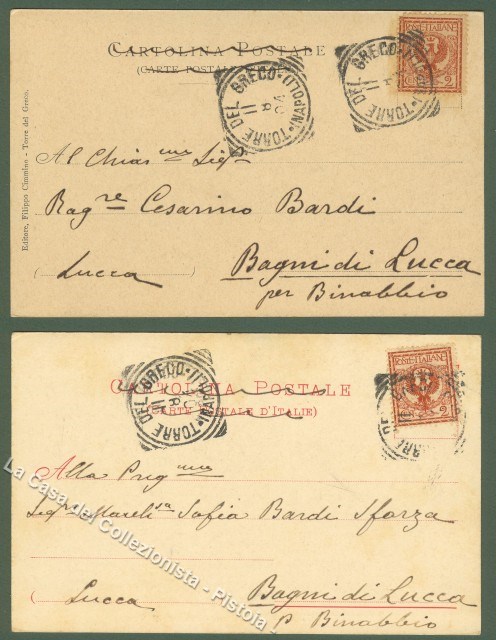 CARTOLINA POSTALE
(CARTE POSTALE
TORRE DEL GRECO (NAPOLI)
11 8 04
TORRE DEL GRECO (NAPOLI)
POSTE ITALIANE
2
Editore, Filippo Cimmino - Torre del Greco.
Al Chiar mo Sig.
Rag.re Cesarino Bardi
(Lucca) Bagni di Lucca
per Binabbio
CARTOLINA POSTALE
(CARTE POSTALE D'ITALIE)
TORRE DEL GRECO (NAPOLI)
POSTE ITALIANE
2
Alla Preg ma
Sig.ra Sofia Bardi Sforza
(Lucca Bagni di Lucca
p Binabbio
La Casa del Collezionista - Pistoia